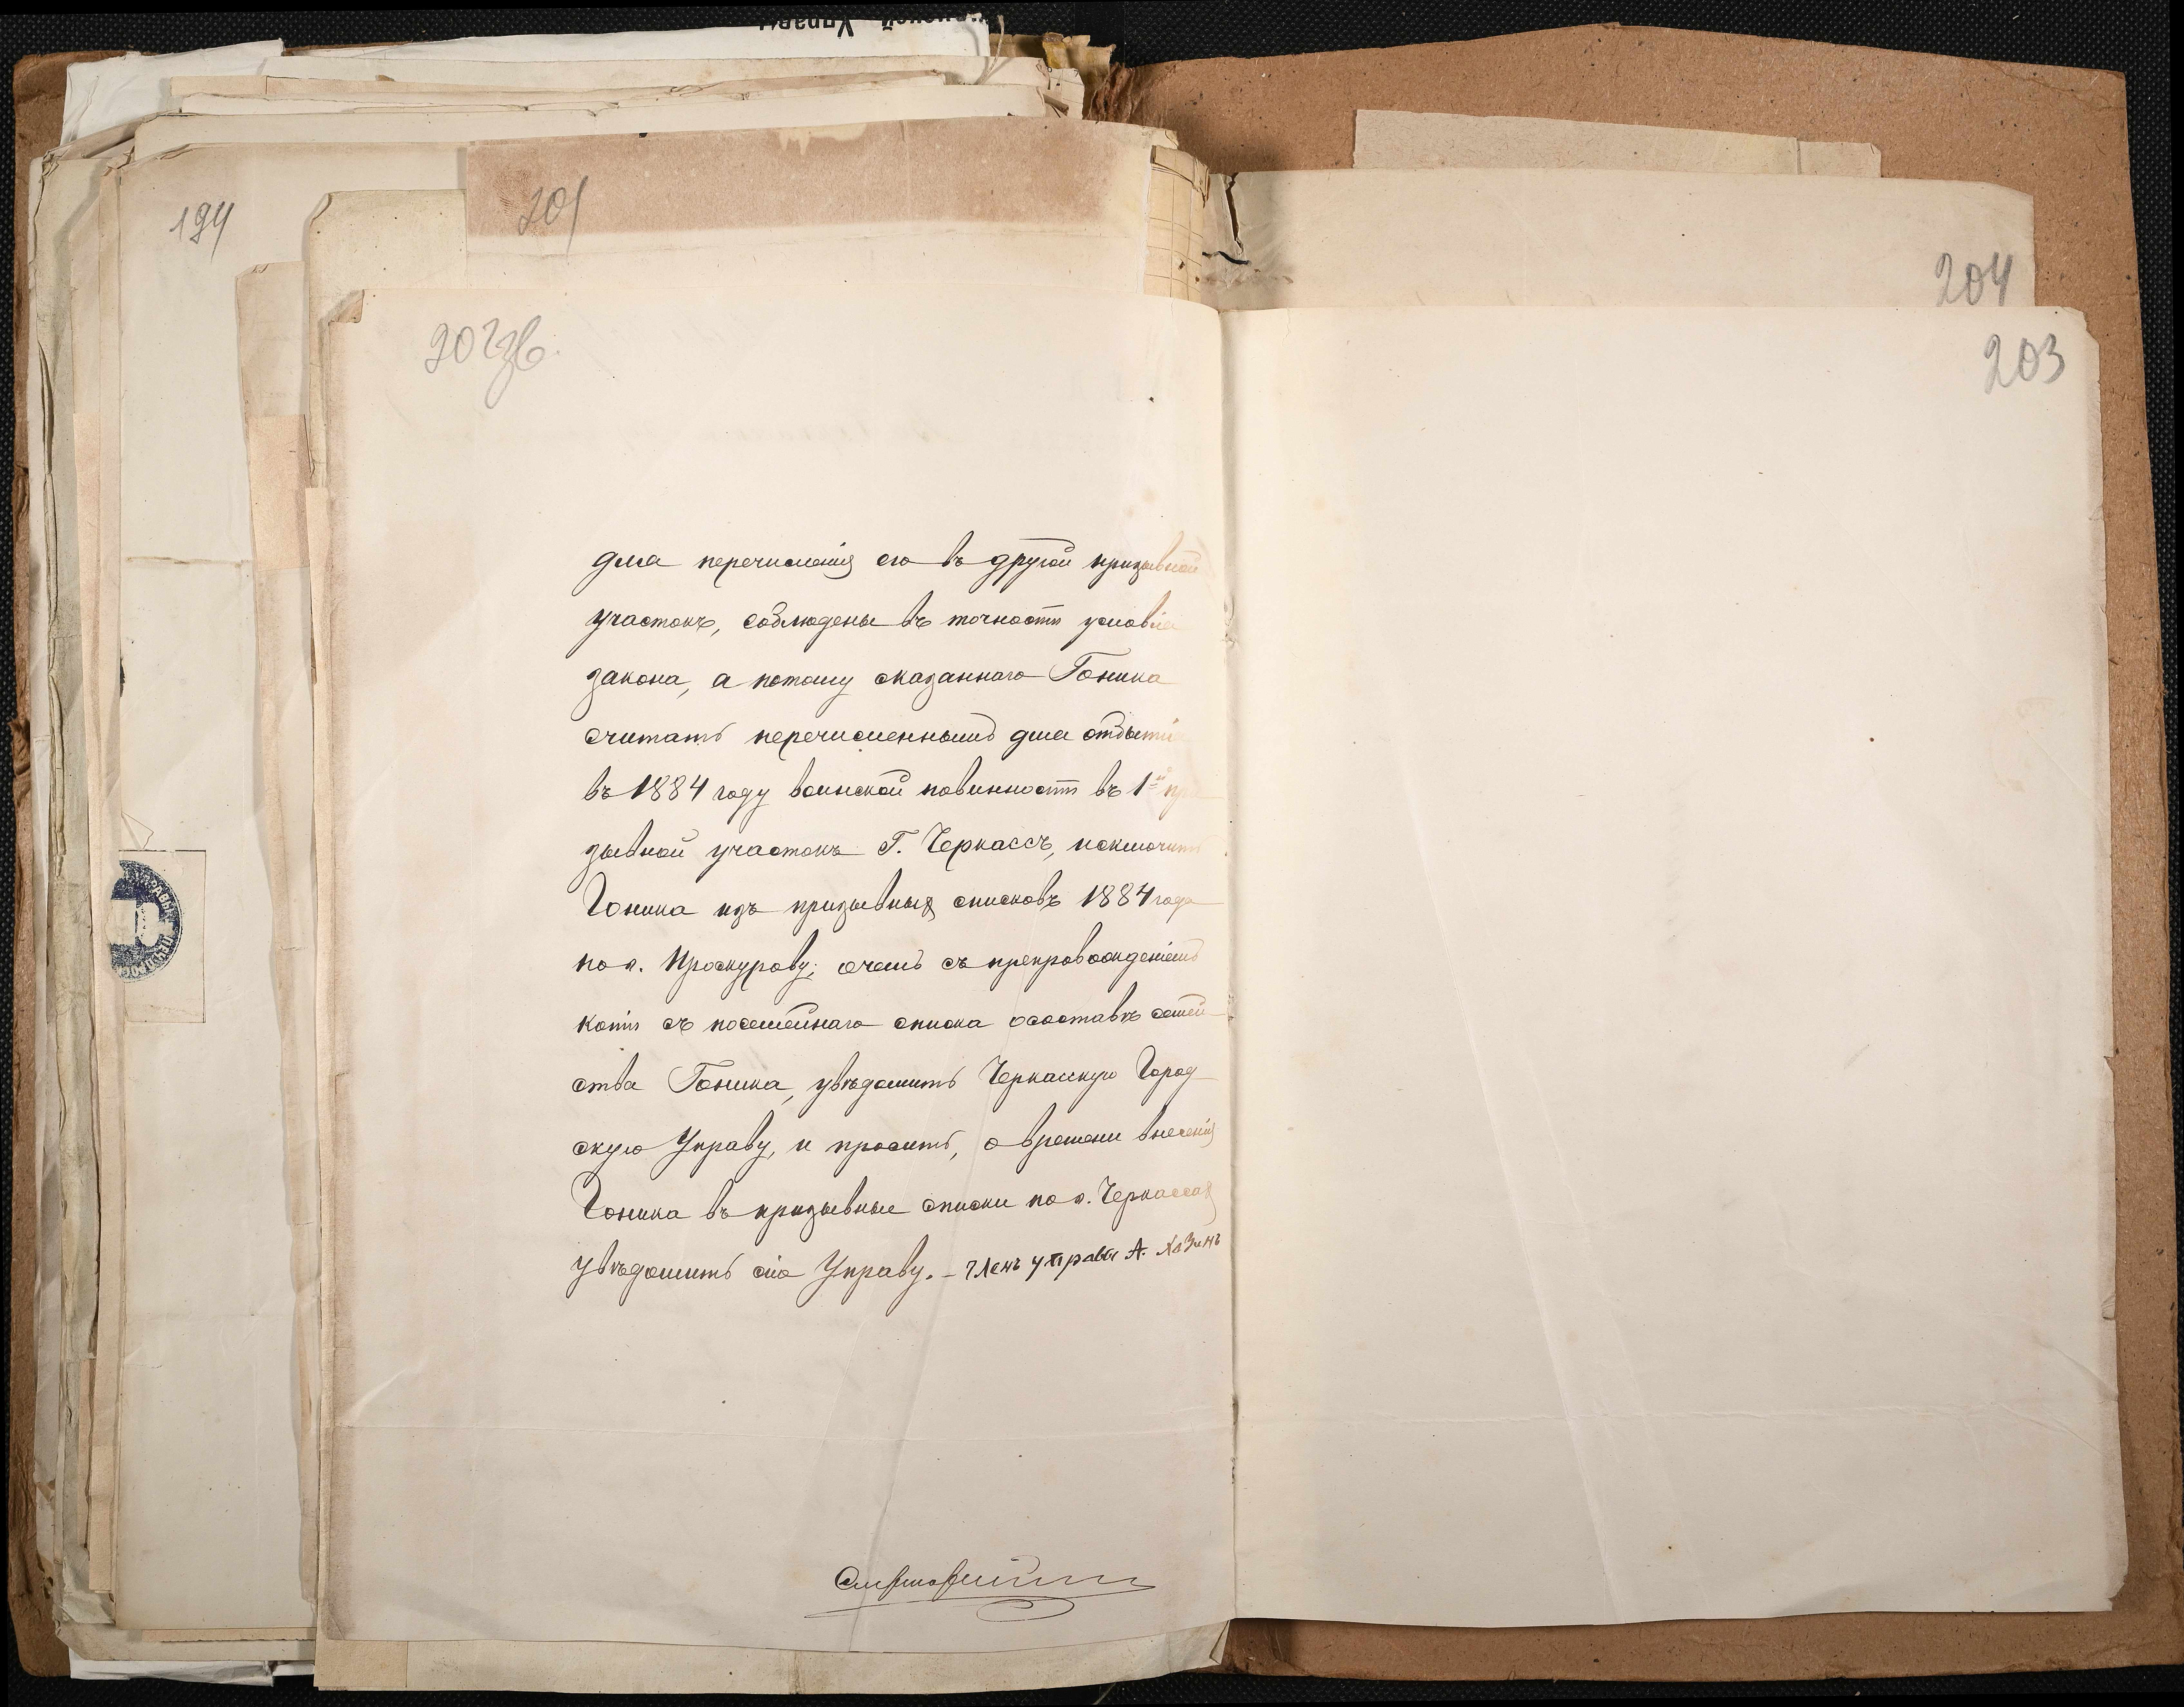 194
201
202зв.
204
203
для перечисленія его въ другой призывной
участокъ, соблюдены въ точности условія
закона, а потому сказаннаго Гоника
считать перечисленнымъ для отбытія
въ 1884 году воинской повинности въ 1й при
зывной участокъ Г. Черкассъ, исключить
Гоника изъ призывныхъ списковъ 1884 года
по г. Проскурову; о чемъ съ препровожденіемъ
копіи съ посемейнаго списка о составѣ семей
ства Гоника, увѣдомить Черкасскую Город
скую Управу, и просить, о времени внесенія
Гоника въ призывные списки по г. Черкассахъ
увѣдомить сію Управу. – Членъ управы А.